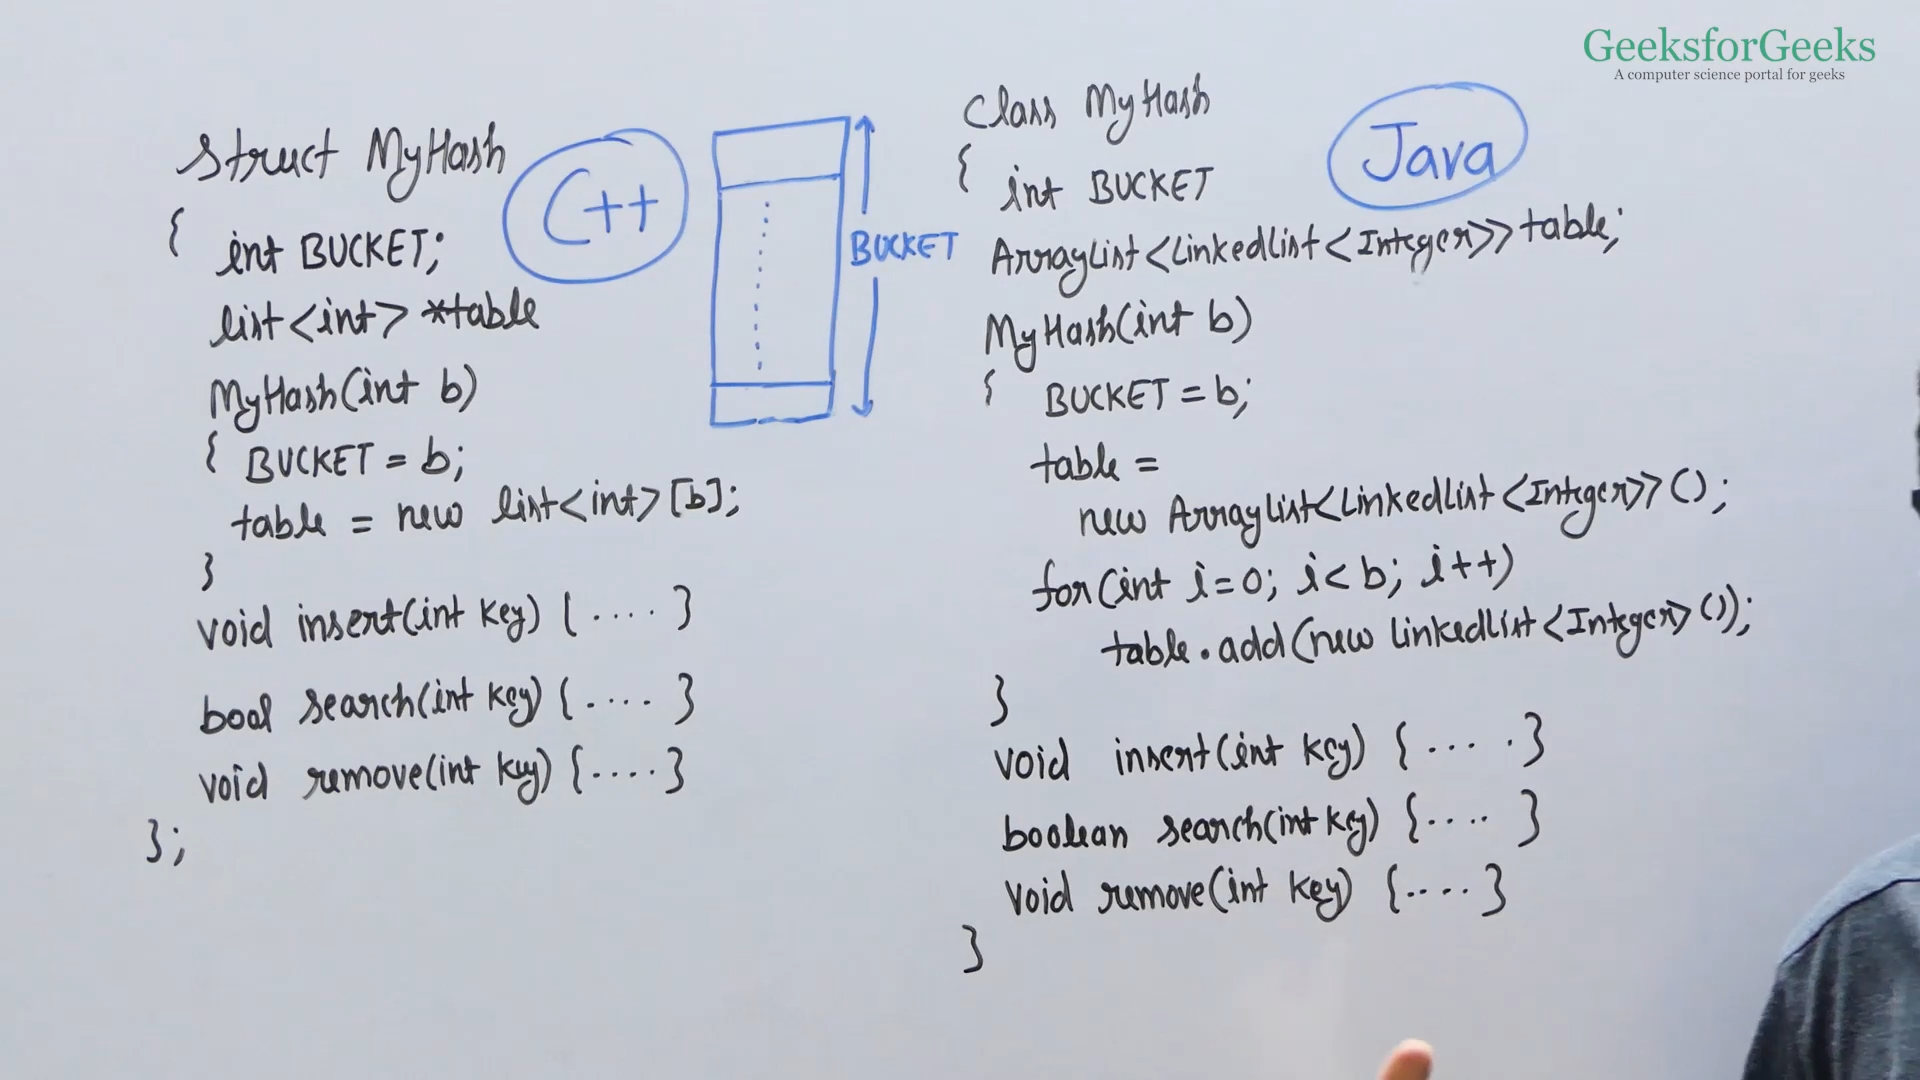 GeeksforGeeks
A computer science portal for geeks
struct MyHash
{ int BUCKET;
list<int> *table
MyHash(int b)
{ BUCKET = b;
table = new list<int>[b];
}
void insert(int key) { .... }
bool search(int key) { .... }
void remove(int key) { .... }
};
C++
BUCKET
Class MyHash
{ int BUCKET
ArrayList<LinkedList<Integer>> table;
MyHash(int b)
{ BUCKET = b;
table =
new ArrayList<LinkedList<Integer>>();
for(int i=0; i<b; i++)
table.add(new LinkedList<Integer>());
}
void insert(int key) { .... }
boolean search(int key) { .... }
void remove(int key) { .... }
}
Java